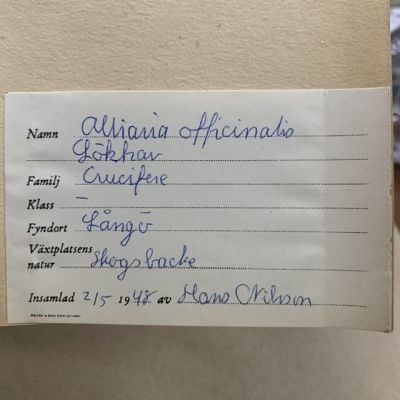 Namn Alliaria officinalis
Lökkav
Familj Crucifere
Klass —
Fyndort Långö
Växtplatsens
natur Skogsbacke
Insamlad 2/5 1948 av Hans Nilsson